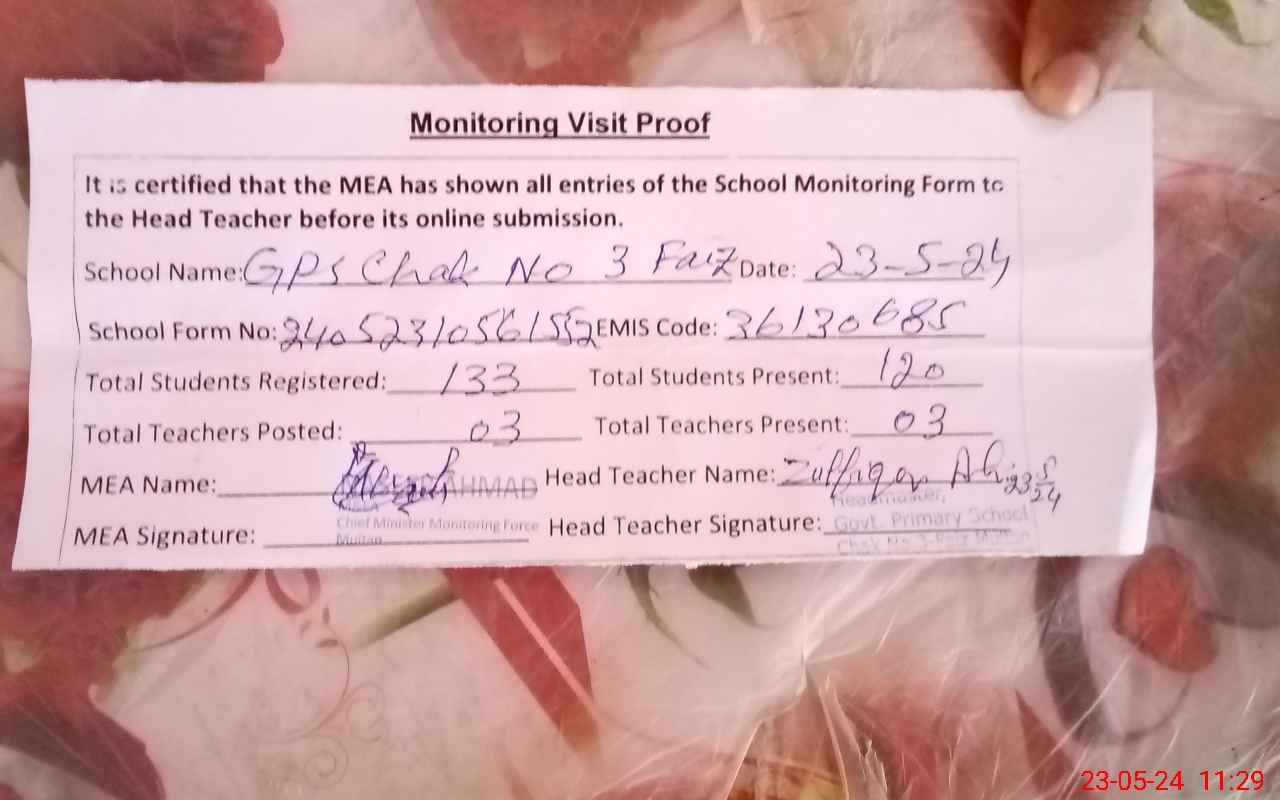 Monitoring Visit Proof
It is certified that the MEA has shown all entries of the School Monitoring Form to
the Head Teacher before its online submission.
School Name: GPS Chak No 3 Faiz Date: 23-5-24
School Form No: 24052310561552 EMIS Code: 36130685
Total Students Registered: 133 Total Students Present: 120
Total Teachers Posted: 03 Total Teachers Present: 03
MEA Name: AHMAD Head Teacher Name: Zulfiqar Ali 23/5/24
MEA
Headmaster,
Chief Minister Monitoring Force
Govt. Primary School
MEA Signature: Head Teacher Signature:
Multan
Chak No 3-Faiz Multan
23-05-24 11:29